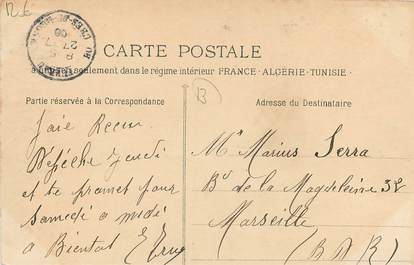 CARTE POSTALE
seulement dans le régime intérieur FRANCE - ALGÉRIE - TUNISIE
Partie réservée à la Correspondance
Adresse du Destinataire
B
Jaie Recu
Dépéche Jeudi
et te promet pour
samedi a midi
a Bientot
Mr Marius Serra
Bd de la Magdeleine
Marseille
(B D R)